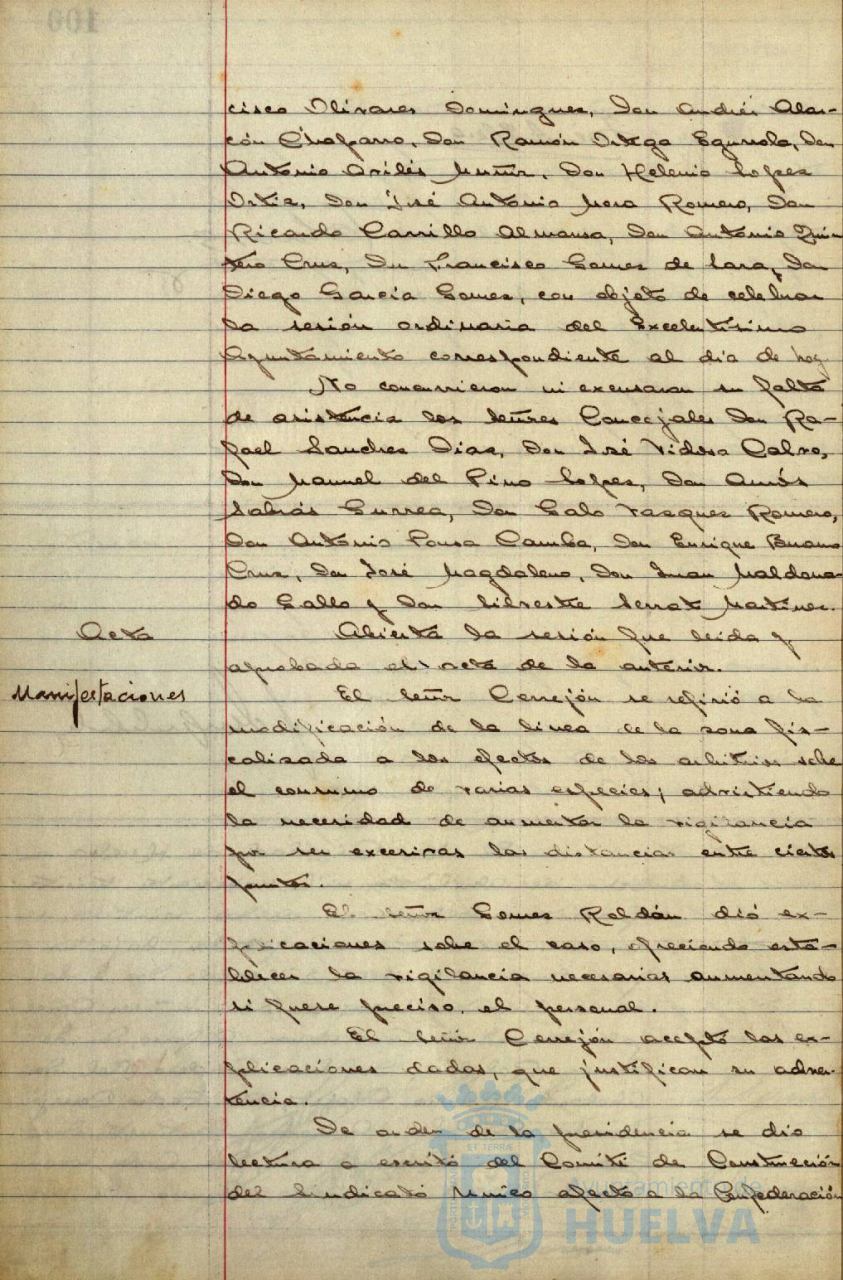 cisco Olivares Domínguez, Don Andrés Alar-
cón Cháparro, Don Ramón Ortega Egurrola, Don
Antonio Avilés Muñiz, Don Helenio Lopez
Ortiz, Don José Antonio Mora Romero, Don
Ricardo Carrillo Almansa, Don Antonio Quin-
tero Cruz, Don Francisco Gomez de Lara, Don
Diego García Gomez, con objeto de celebrar
la sesión ordinaria del Excelentísimo
Ayuntamiento correspondiente al dia de hoy.
No concurrieron ni excusaron su falta
de asistencia los señores Concejales Don Ra-
fael Sanchez Diaz, Don José Vidosa Calvo,
Don Manuel del Pino Lopez, Don Amós
Sabrás Gurrea, Don Galo Vazquez Romero,
Don Antonio Pousa Camba, Don Enrique Bueno
Cruz, Don José Magdaleno, Don Juan Maldona-
do Gallo y Don Silvestre Serrat Martinez.
Acta
Abierta la sesión fue leida y
aprobada el acta de la anterior.
Manifestaciones
El señor Cerrejón se refirió a la
modificación de la linea de la zona fis-
calizada a los efectos de los arbitrios sobre
el consumo de varias especies; advirtiendo
la necesidad de aumentar la vigilancia
por ser excesivas las distancias entre ciertos
puntos.
El señor Gomez Roldán dió ex-
plicaciones sobre el caso, ofreciendo esta-
blecer la vigilancia necesarias aumentando
si fuese preciso, el personal.
El señor Cerrejón aceptó las ex-
plicaciones dadas, que justifican su adver-
tencia.
De orden de la presidencia se dio
lectura a escrito del Comité de Construcción
del Sindicato Unico afecto a la Confederación
Ayuntamiento de
HUELVA